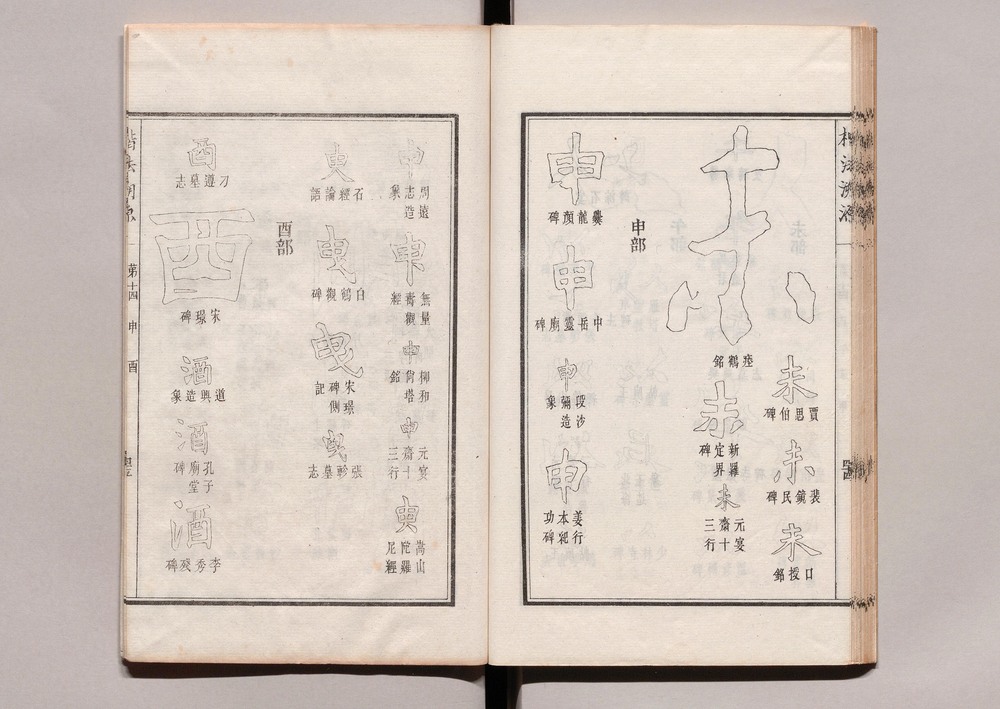 楷法溯源
未
賈思伯碑
未
裴鏡民碑
未
口授銘
未
瘞鶴銘
未
新羅定界碑
未
元宴齋十三行
申部
申
爨龍顏碑
申
中岳靈廟碑
申
段沙彌造象
申
姜行本紀功碑
申
周遠志造象
申
無量壽觀經
申
柳和尚塔銘
申
元宴齋十三行
臾
嵩山陀羅尼經
臾
石經論語
曳
白鶴觀碑
曳
宋璟碑側記
曳
張軫墓志
酉部
酉
刁遵墓志
酉
宋璟碑
酒
道興造象
酒
孔子廟堂碑
酒
李秀殘碑
楷法溯源
第十四
申
酉